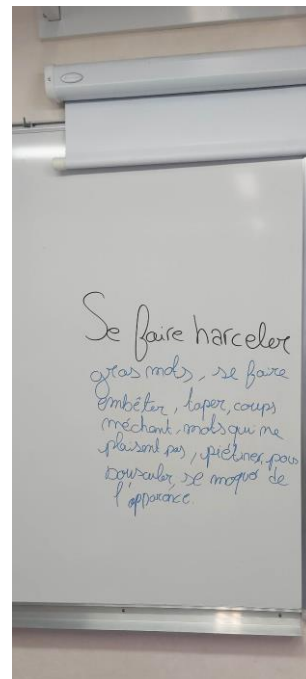 Se faire harceler
gros mots, se faire
embéter, taper, coups
méchant, mots qui ne
plaisent pas, piétiner, pous
bousculer, se moqué de
l'apparance.